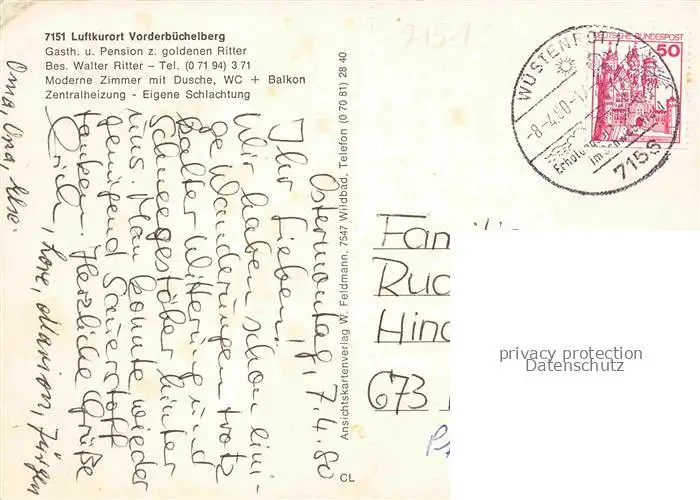 7151 Luftkurort Vorderbüchelberg
Gasth. u. Pension z. goldenen Ritter
Bes. Walter Ritter – Tel. (0 71 94) 3 71
Moderne Zimmer mit Dusche, WC + Balkon
Zentralheizung - Eigene Schlachtung
Ostermontag, 7.4.80
Ihr Lieben!
Wir haben schon eini-
ge Wanderungen trotz
kalter Witterung und
Schneegestöber hinter
uns. Man konnte wieder
genügend Sauerstoff
tanken. Herzliche Grüße
Erich, Lore, Marion, Jürgen
Oma, Opa, Else.
Ansichtskartenverlag W. Feldmann, 7547 Wildbad, Telefon (0 70 81) 28 40
CL
715-1
WÜSTENROT
-8-4.80-1
Erholung
im Schwäb
7156
DEUTSCHE BUNDESPOST
50
Famili
Rud
Hind
673
privacy protection
Datenschutz